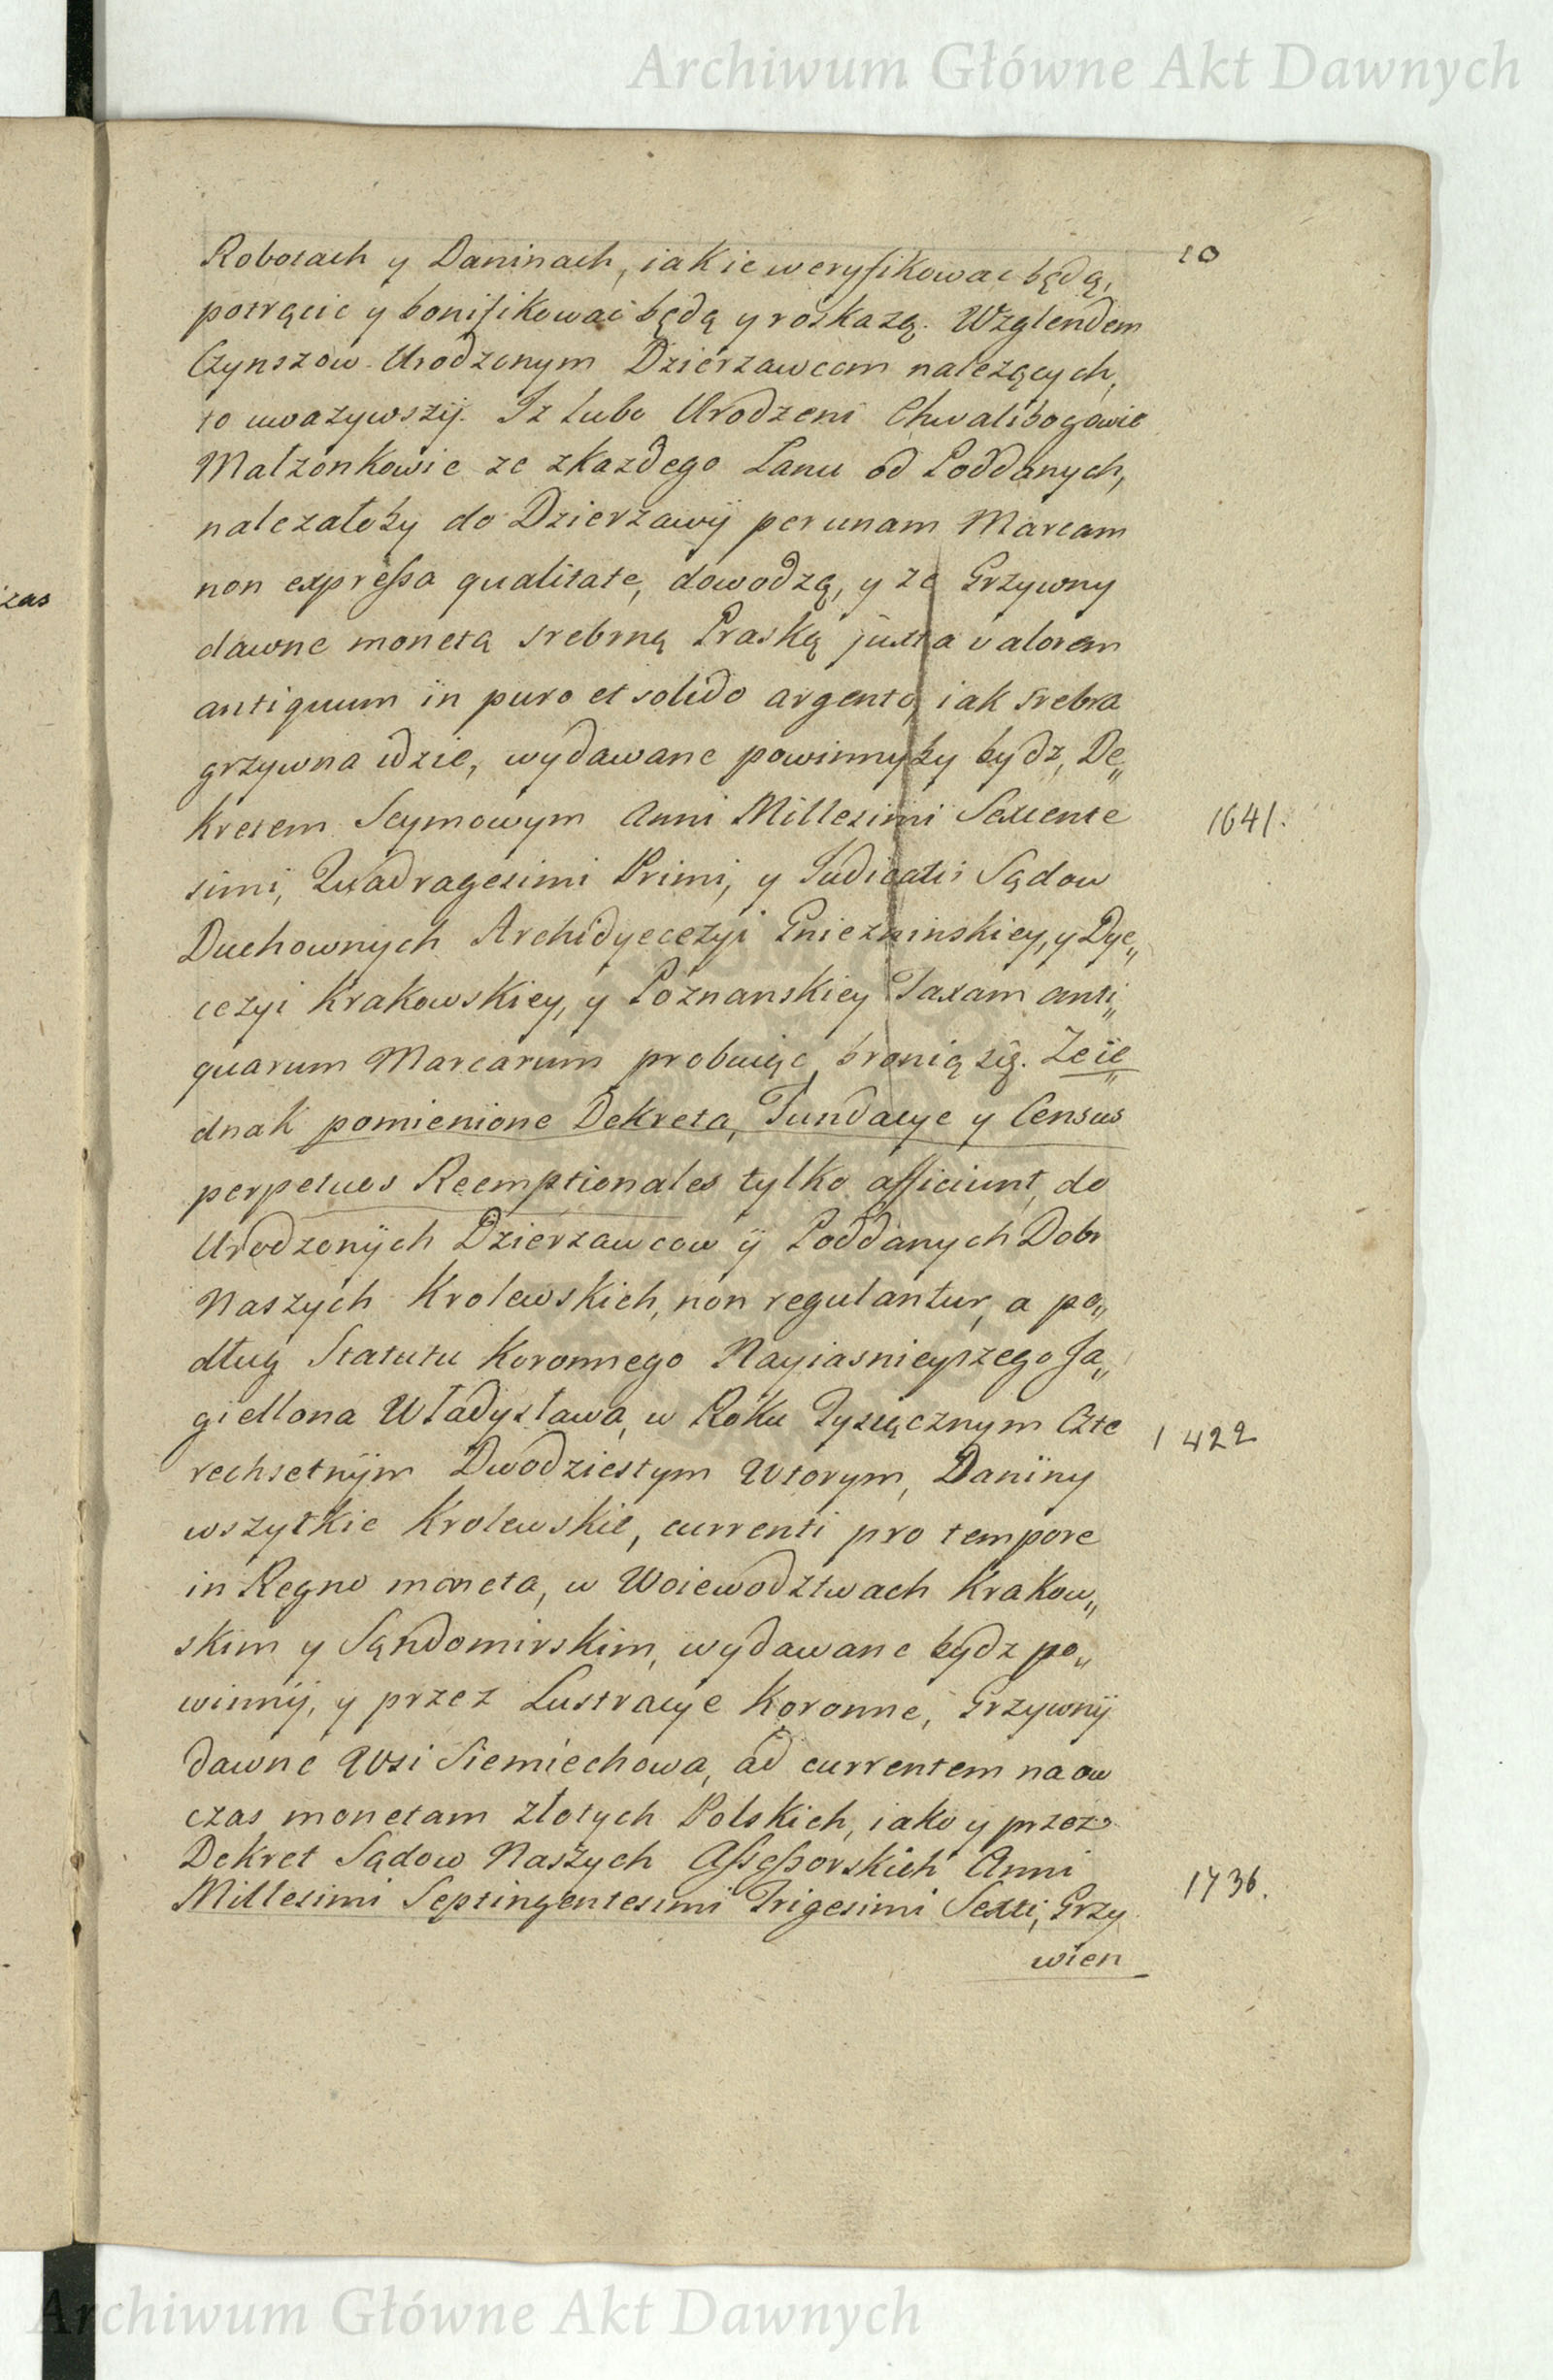 Archiwum Główne Akt Dawnych
10
Robotach y Daninach, iakie weryfikowac będą,
potrącic y bonifikowac będą y roskazą. Wzglendem
Czynszow Urodzonym Dzierzawcom nalezących,
to uwazywszÿ. Iz lubo Urodzeni Chwalibogowie
Malzonkowie ze zkazdego Lanu od Poddanych,
nalezałoby do Dzierzawÿ per unam Marcam
non expressa qualitate, dowodzą, y ze Grzywny
dawne monetą srebrną Praską juxta valorem
antiquum in puro et solido argento, iak srebra
grzywna idzie, wydawane powinnyby bydz, De„
kretem Seymowym Anni Millesimi Sexcente
1641.
simi, Quadragesimi Primi, y Judicatis Sądow
Duchownych Archidyecezyi Gniezninskiey, y Dye„
cezyi Krakowskiey, y Poznanskiey Taxam anti„
quarum Marcarum probuiąc, bronią się. Ze ie„
dnak pomienione Dekreta, Fundacye y Census
perpetuos Reemptionales tylko afficiunt, do
Urodzonÿch Dzierzawcow ÿ Poddanych Dobr
Naszych Krolewskich, non regulantur, a po„
dług Statutu Koronnego Nayiasnieyszego Ja„
giellona Władysława, w Roku Tysiącznym Czte
1422
rechsetnÿm Dwodziestym Wtorym, Daniny
wszytkie Krolewskie, currenti pro tempore
in Regno moneta, w Woiewodztwach Krakow„
skim y Sąndomirskim, wydawane bydz po„
winnÿ, y przez Lustracye Koronne, Grzywnÿ
dawne Wsi Siemiechowa, ad currentem na ow
czas monetam złotych Polskich, iako y przez
Dekret Sądow Naszych Assessorskich Anni
Millesimi Septingentesimi Trigesimi Sexti, Grzy
1736.
wien
zas
Archiwum Główne Akt Dawnych